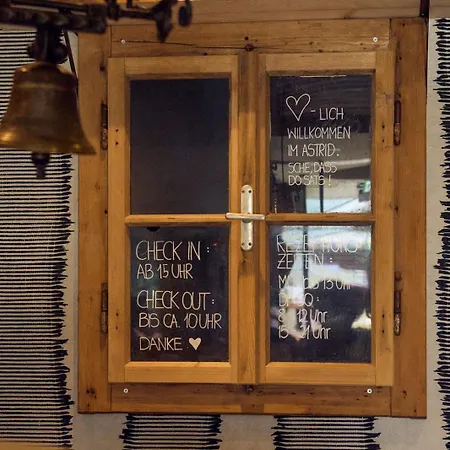 ♡-LICH
WILLKOMMEN
IM ASTRID.
SCHE, DASS
DO SATS!
CHECK IN:
AB 15 UHR
CHECK OUT:
BIS CA. 10 UHR
DANKE ♥
REZEPTIONS
ZEITEN:
15 Uhr
12 Uhr
Uhr